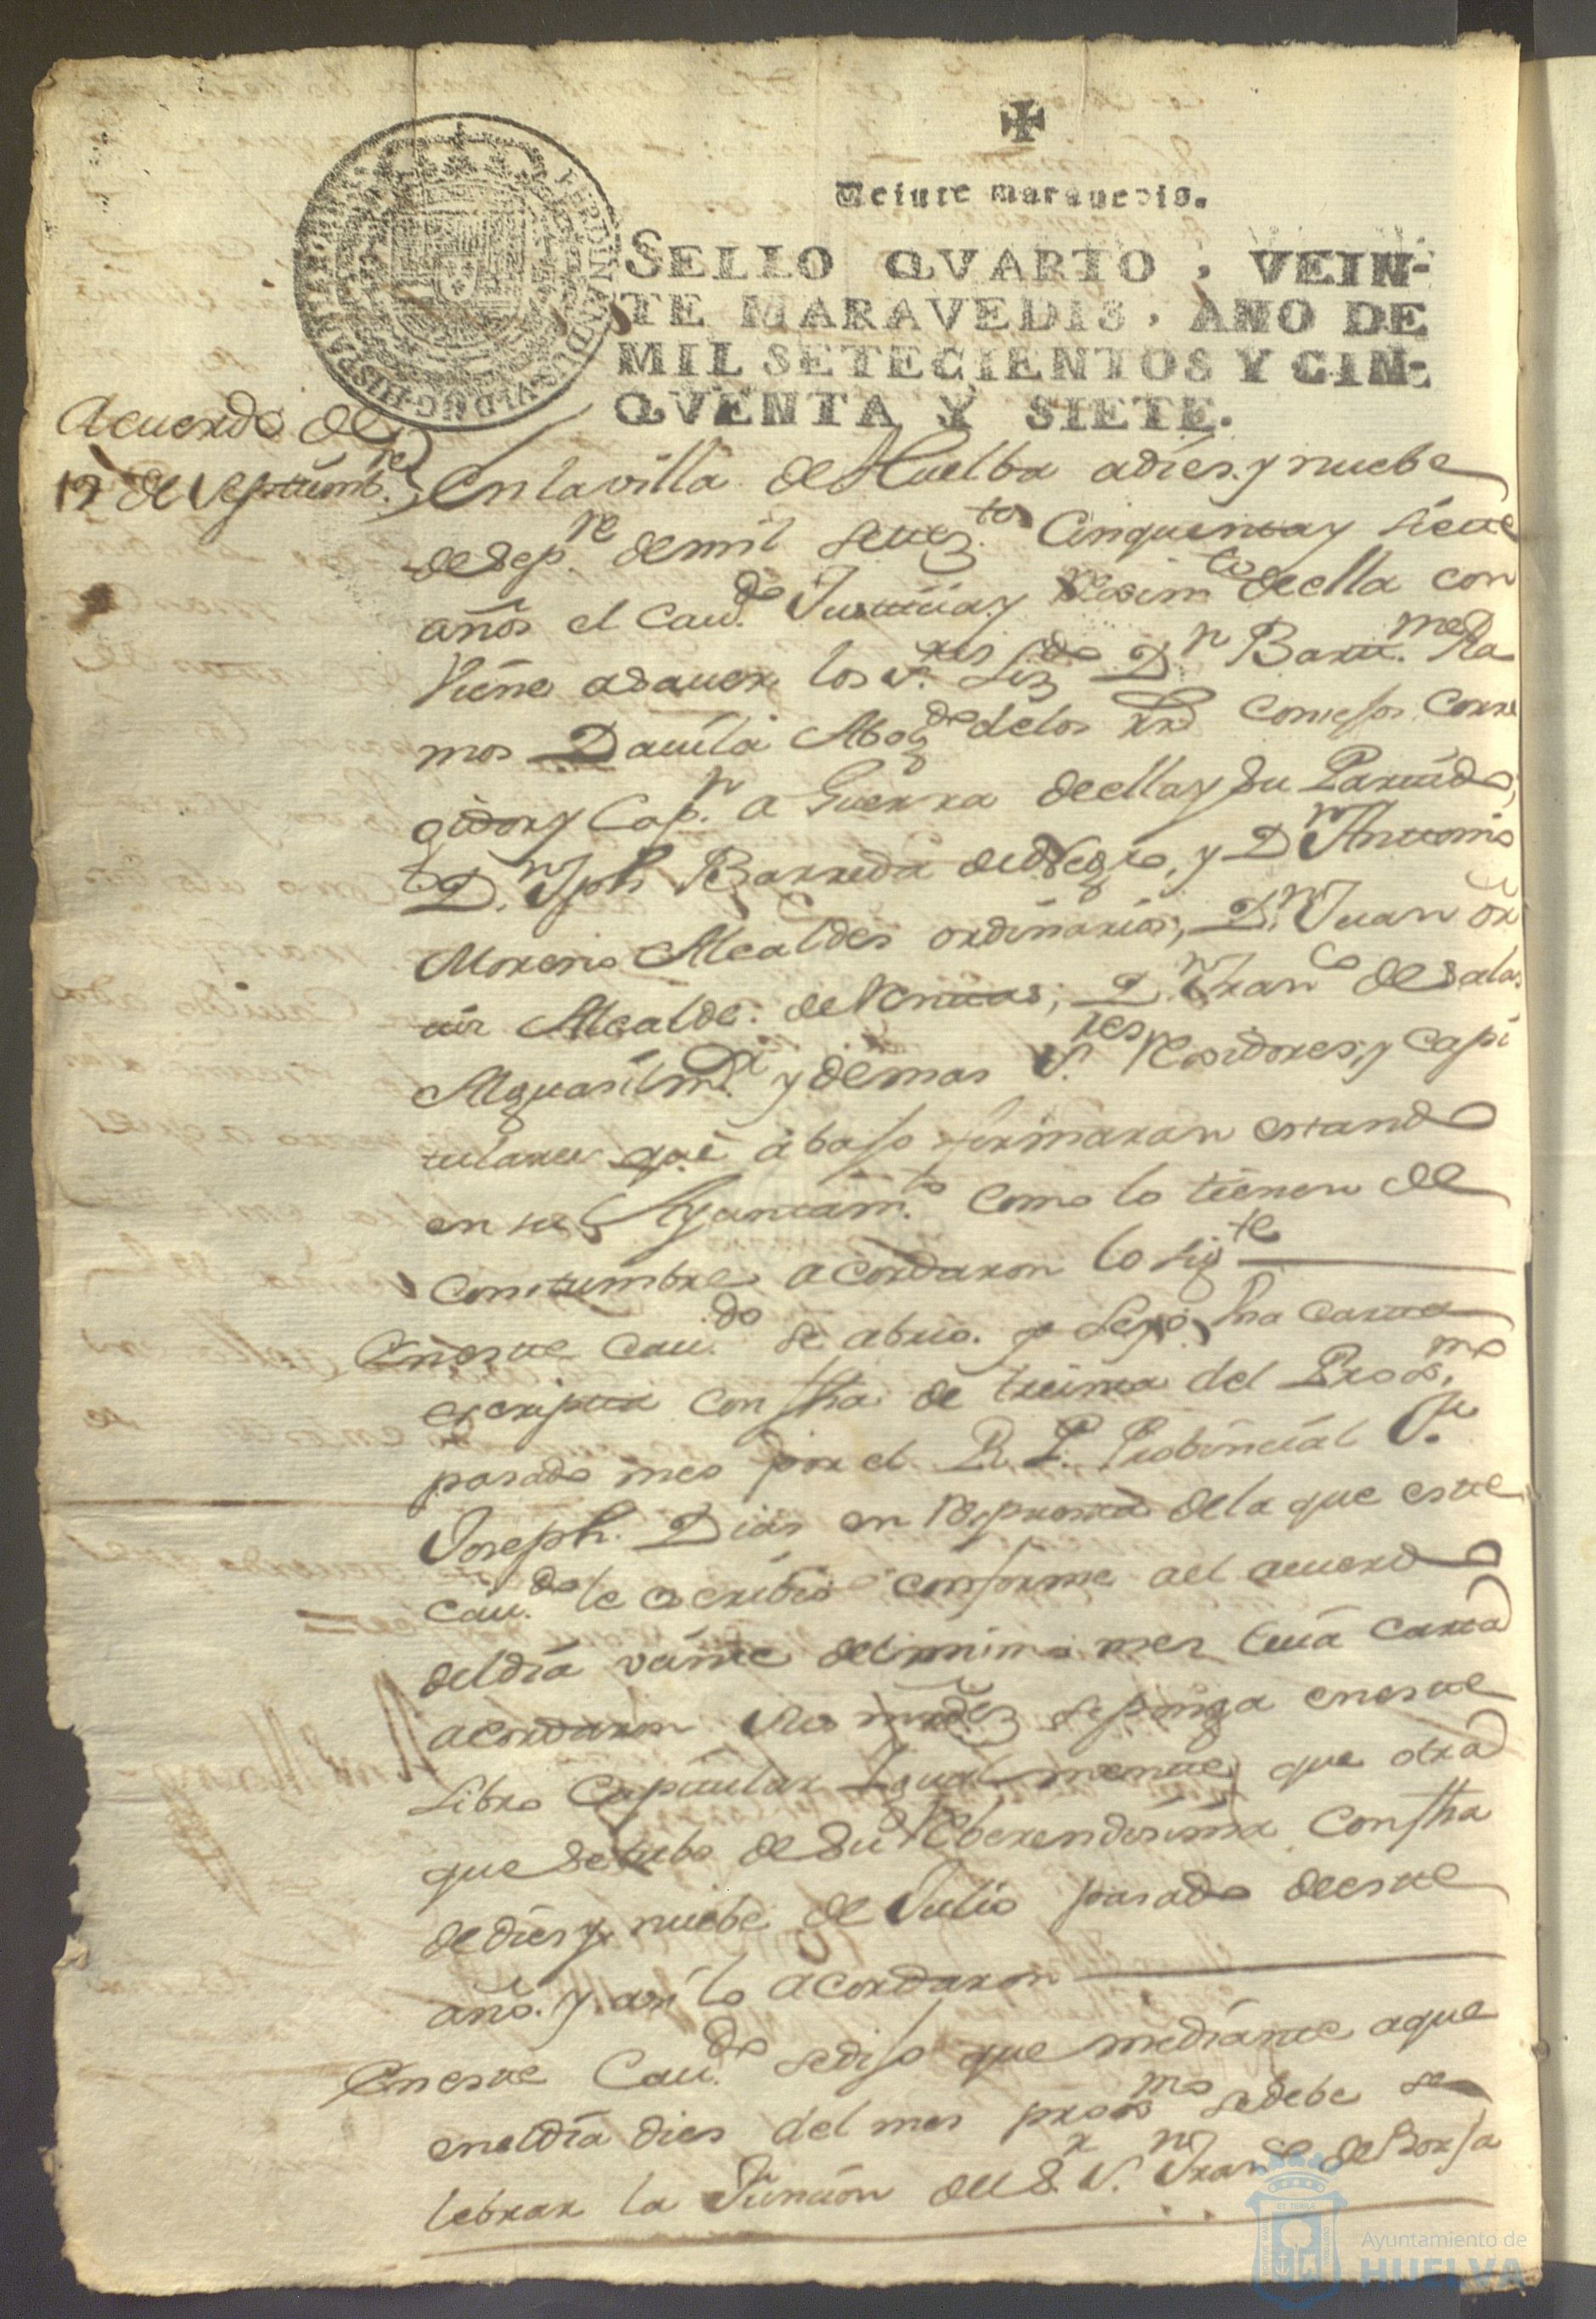 ✠
Veinte maravedis.
SELLO QVARTO, VEIN-
TE MARAVEDIS, AÑO DE
MIL SETECIENTOS Y CIN-
QVENTA Y SIETE.
FERDINANDUS VI D G HISPANIARUM REX
Acuerdo de
19 de Septiembre
En la villa de Huelba a dies y nuebe
de Sepre de mil setezos Cinquenta y siete
años el Cavdo Justicia y Regimto de ella con
viene a saver los sres Lizdo Dn Barme Ra
mos Davila Abogdo de los Rs Consejos Corre
gidor y Capn a Guerra de ella y su Partido,
Dn Jph Barreda y Dn Antonio
Moreno Alcaldes ordinarios, Dn Juan Or
tiz Alcalde de Dn Franco de Salas
Alguasil mor y demas sres Regidores y Capi
tulares que abaso firmaran estando
en su Ayuntamto como lo tienen de
Constumbre acordaron lo sigte
En este Cavdo se abrio y Leyo Una Carta
escripta con fha de treinta del Proxmo
pasado mes por el R. P. Probincial Fr
Joseph Dias en Respuesta de la que este
Cavdo le escribio conforme al acuerdo
del dia veinte del mismo mes cuia carta
acordaron sus mrdes se ponga en este
Libro Capitular Igualmente que otra
que se tubo de Su Reberendisima Con fha
de dies y nuebe de Julio pasado de este
año. y asi lo acordaron
En este Cavdo se diso que mediante a que
en el dia dies del mes proxmo se debe se
lebrar la Funcion del Sr Sn Franco de Borja
Ayuntamiento de
HUELVA